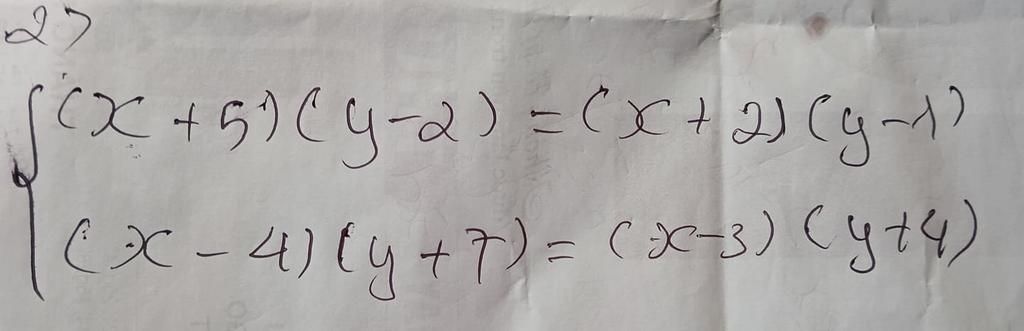 27
(x+5)(y-2)=(x+2)(y-1)
(x-4)(y+7)=(x-3)(y+4)